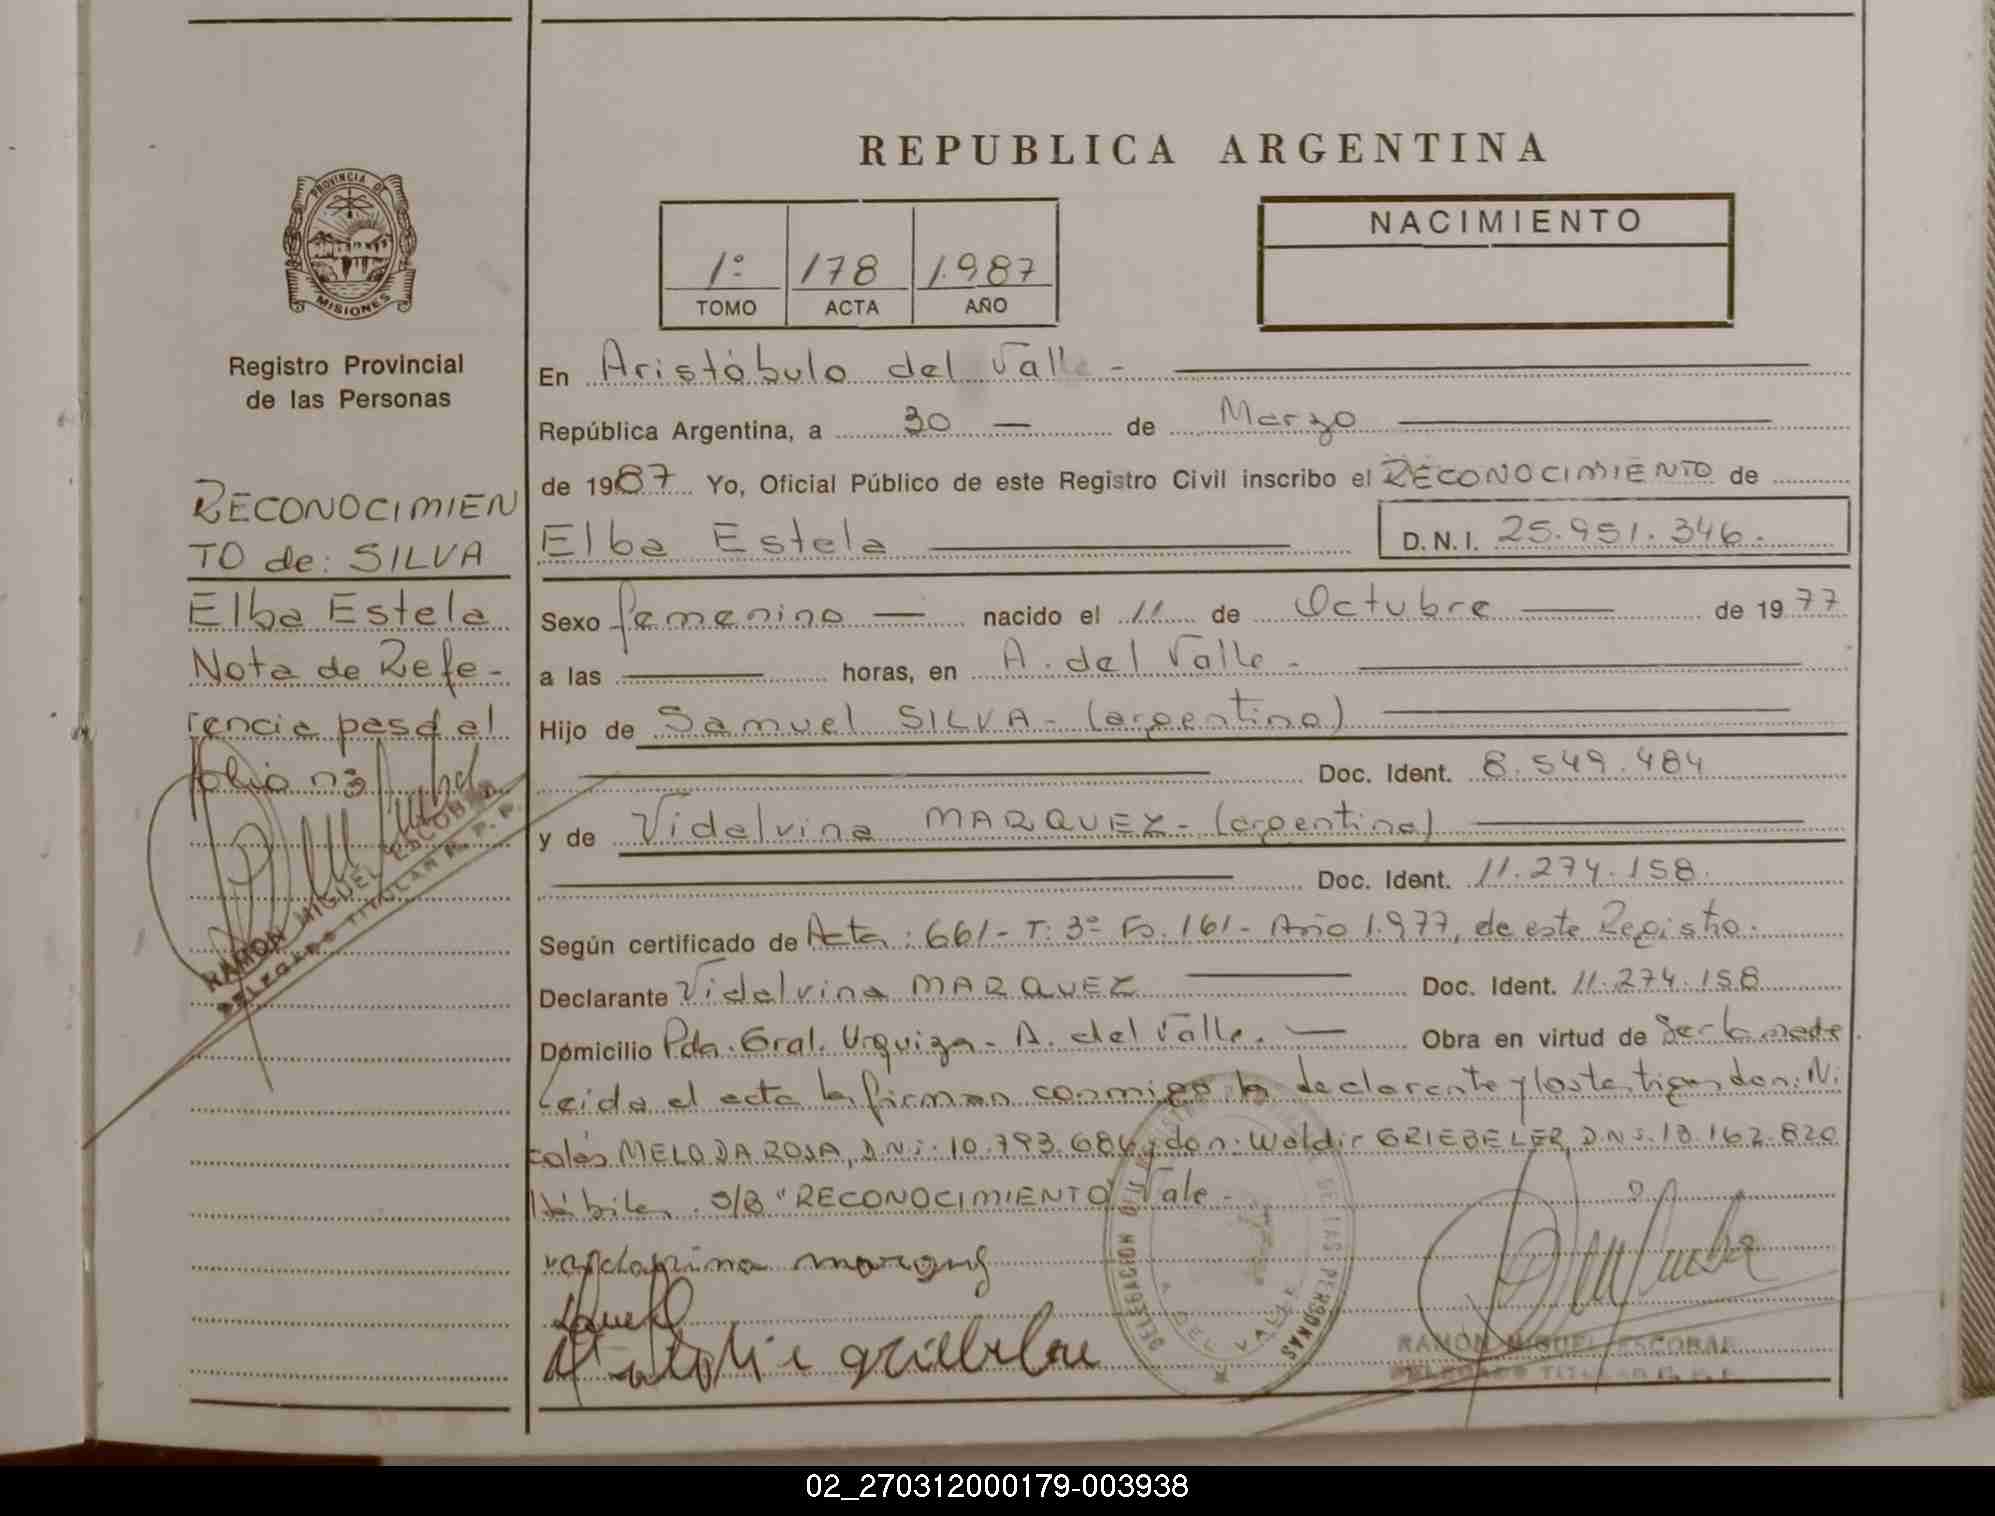 REPUBLICA ARGENTINA
PROVINCIA DE
MISIONES
Registro Provincial
de las Personas
1º 178 1.987
TOMO ACTA AÑO
NACIMIENTO
RECONOCIMIEN
TO de: SILVA
Elba Estela
Nota de Refe-
rencia pasa al
folio nº
RAMON MIGUEL ESCOBAR
DELEGADO TITULAR R. P. P.
En Aristóbulo del Valle -
República Argentina, a 30 de Marzo
de 1987 Yo, Oficial Público de este Registro Civil inscribo el RECONOCIMIENTO de
Elba Estela D. N. I. 25.951.346.
Sexo femenino nacido el 11 de Octubre de 1977
a las horas, en A. del Valle -
Hijo de Samuel SILVA - (argentino)
Doc. Ident. 8.549.484
y de Vidalvina MARQUEZ - (argentina)
Doc. Ident. 11.274.158.
Según certificado de Acta: 661 - T: 3º Fº. 161 - Año 1.977, de este Registro.
Declarante Vidalvina MARQUEZ Doc. Ident. 11.274.158
Domicilio Pda. Gral. Urquiza - A. del Valle. Obra en virtud de Ser la madre.
Leida el acta la firman conmigo la declarante y los testigos don: Ni
colás MELO DA ROSA, D.N.I. 10.793.684 y don: Waldir GRIEBELER, D.N.I. 18.162.820
Hábiles. S/B "RECONOCIMIENTO" Vale -
DELEGACION REGISTRO DE LAS PERSONAS
A. DEL VALLE
RAMON MIGUEL ESCOBAR
DELEGADO TITULAR R. P. P.
02_270312000179-003938